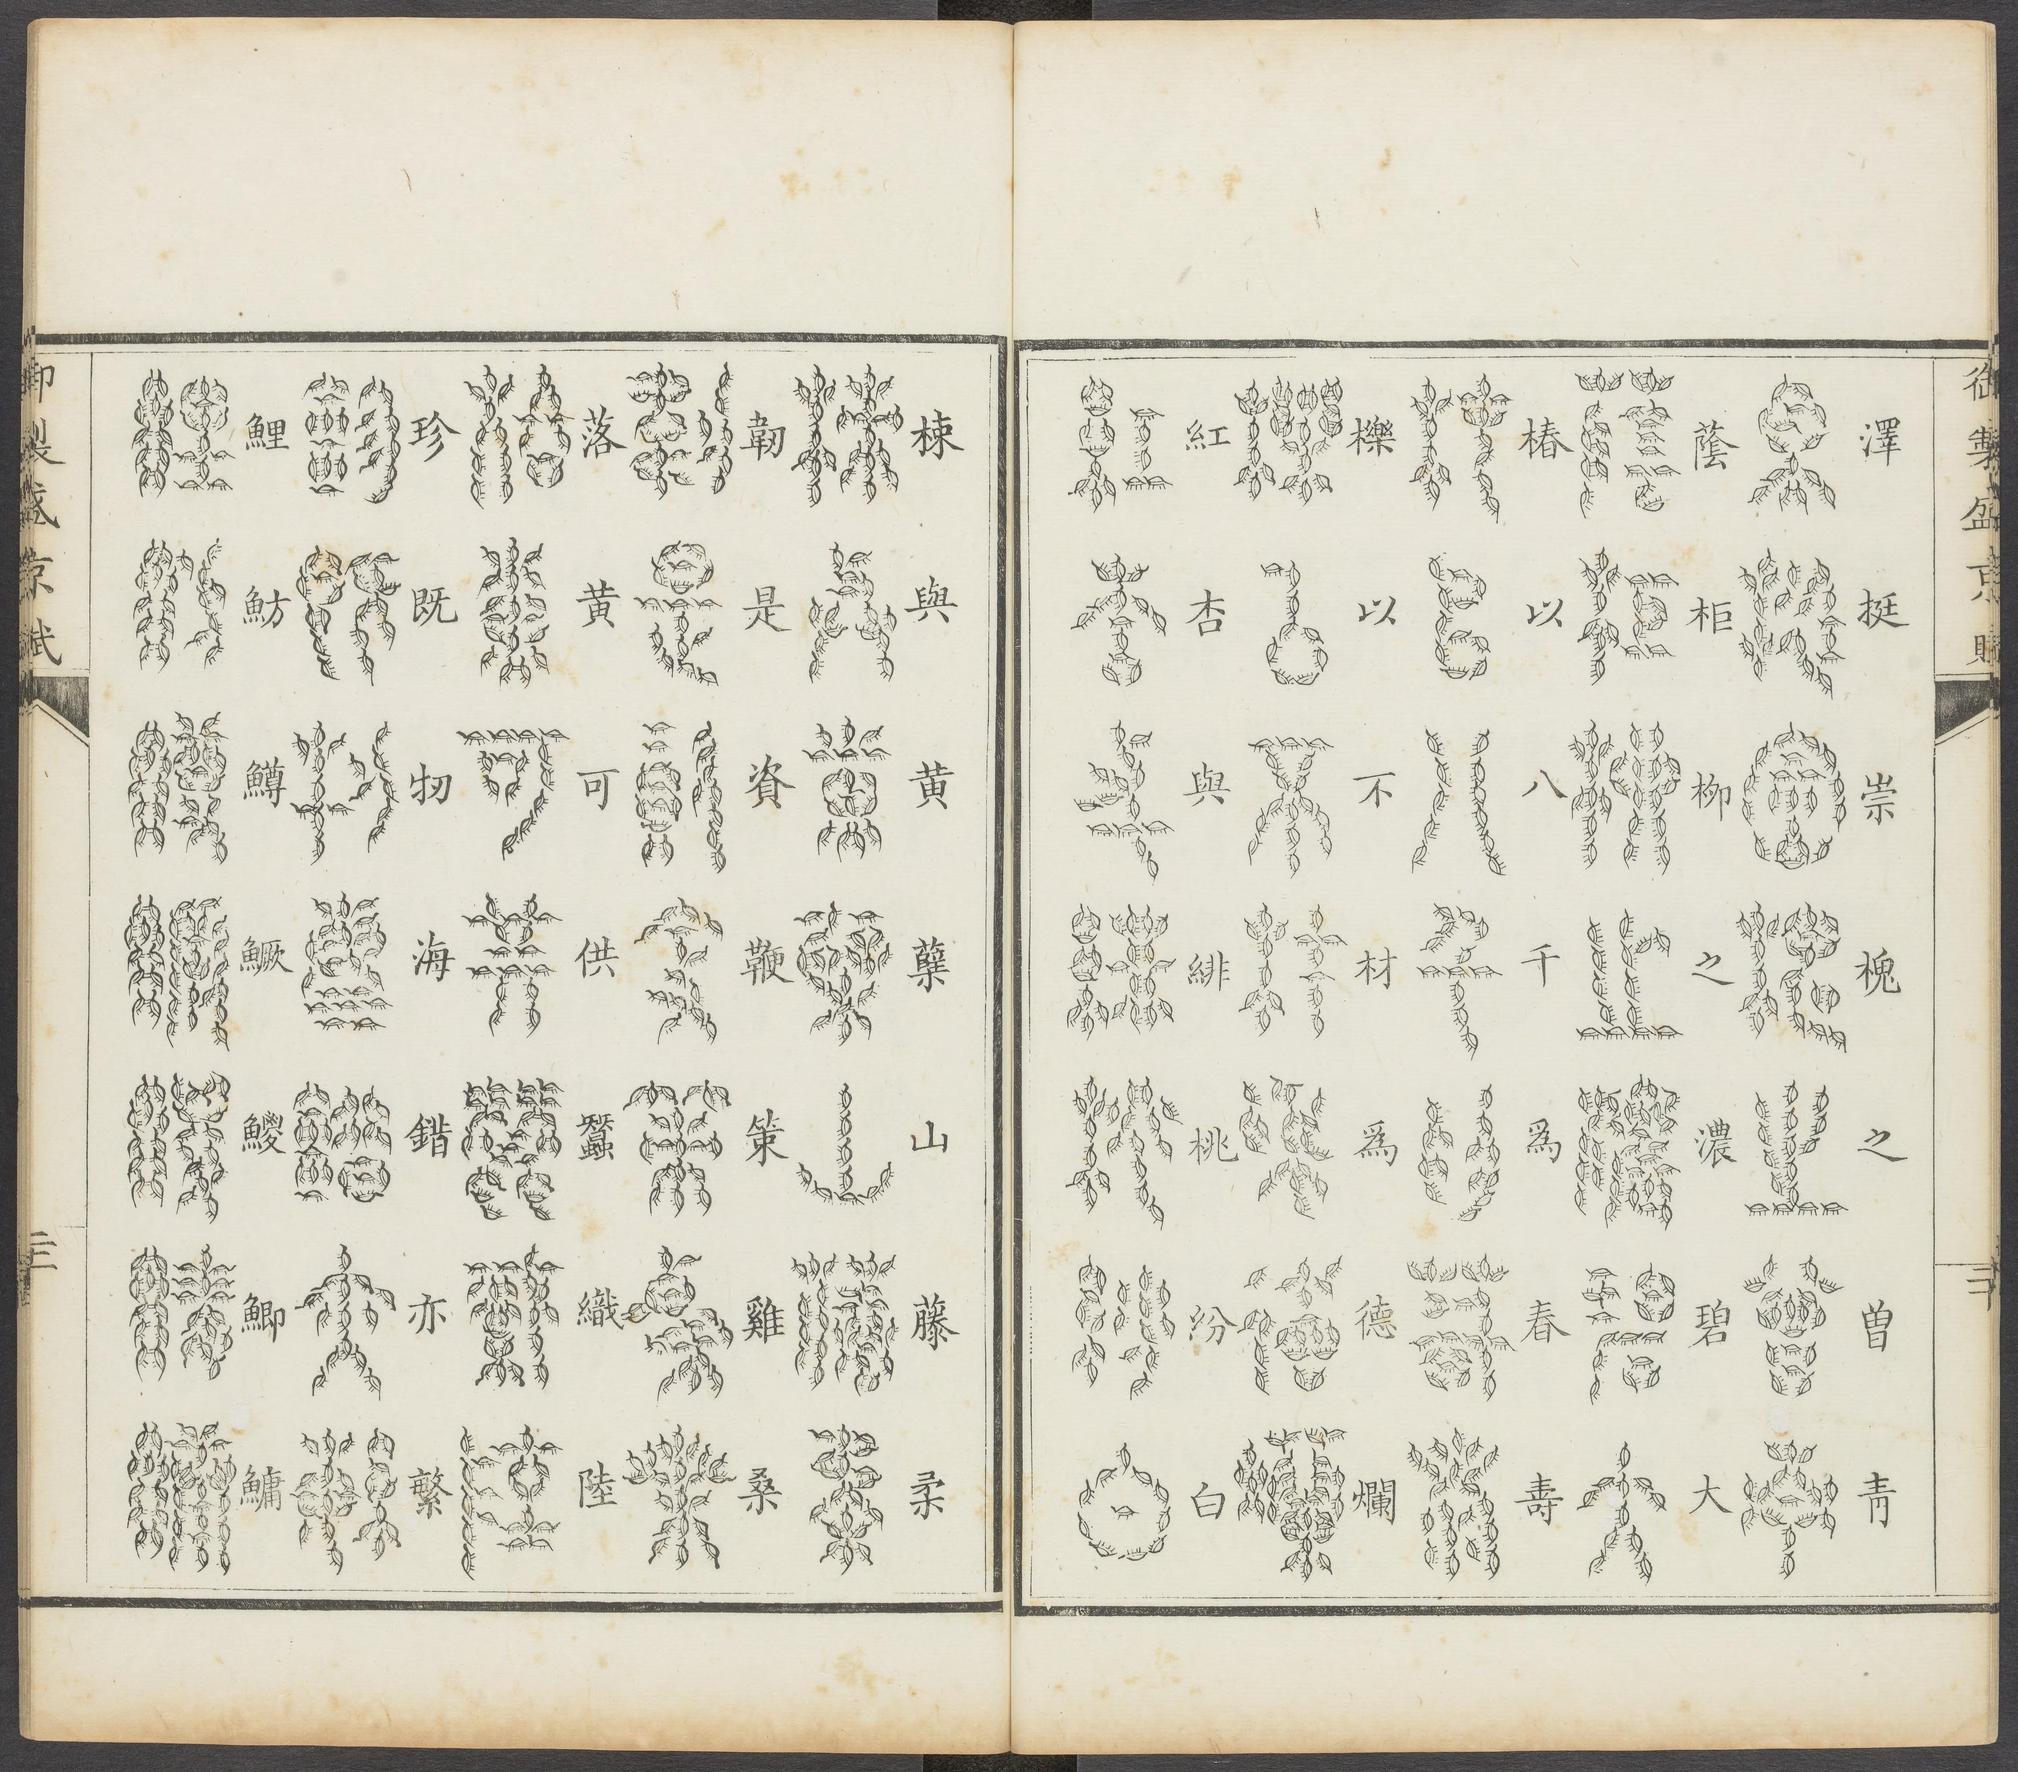 御製盛京賦
澤挺崇槐之曽靑
蔭柜柳之濃碧大
椿以八千爲春壽
櫟以不材爲德爛
紅杏與緋桃紛白
二十
棟與黄蘖山藤柔
韌是資鞭策雞桑
落黄可供蠶織陸
珍既牣海錯亦繁
鯉魴鱒鱖鯼鯽鱅
御製盛京賦
二十一